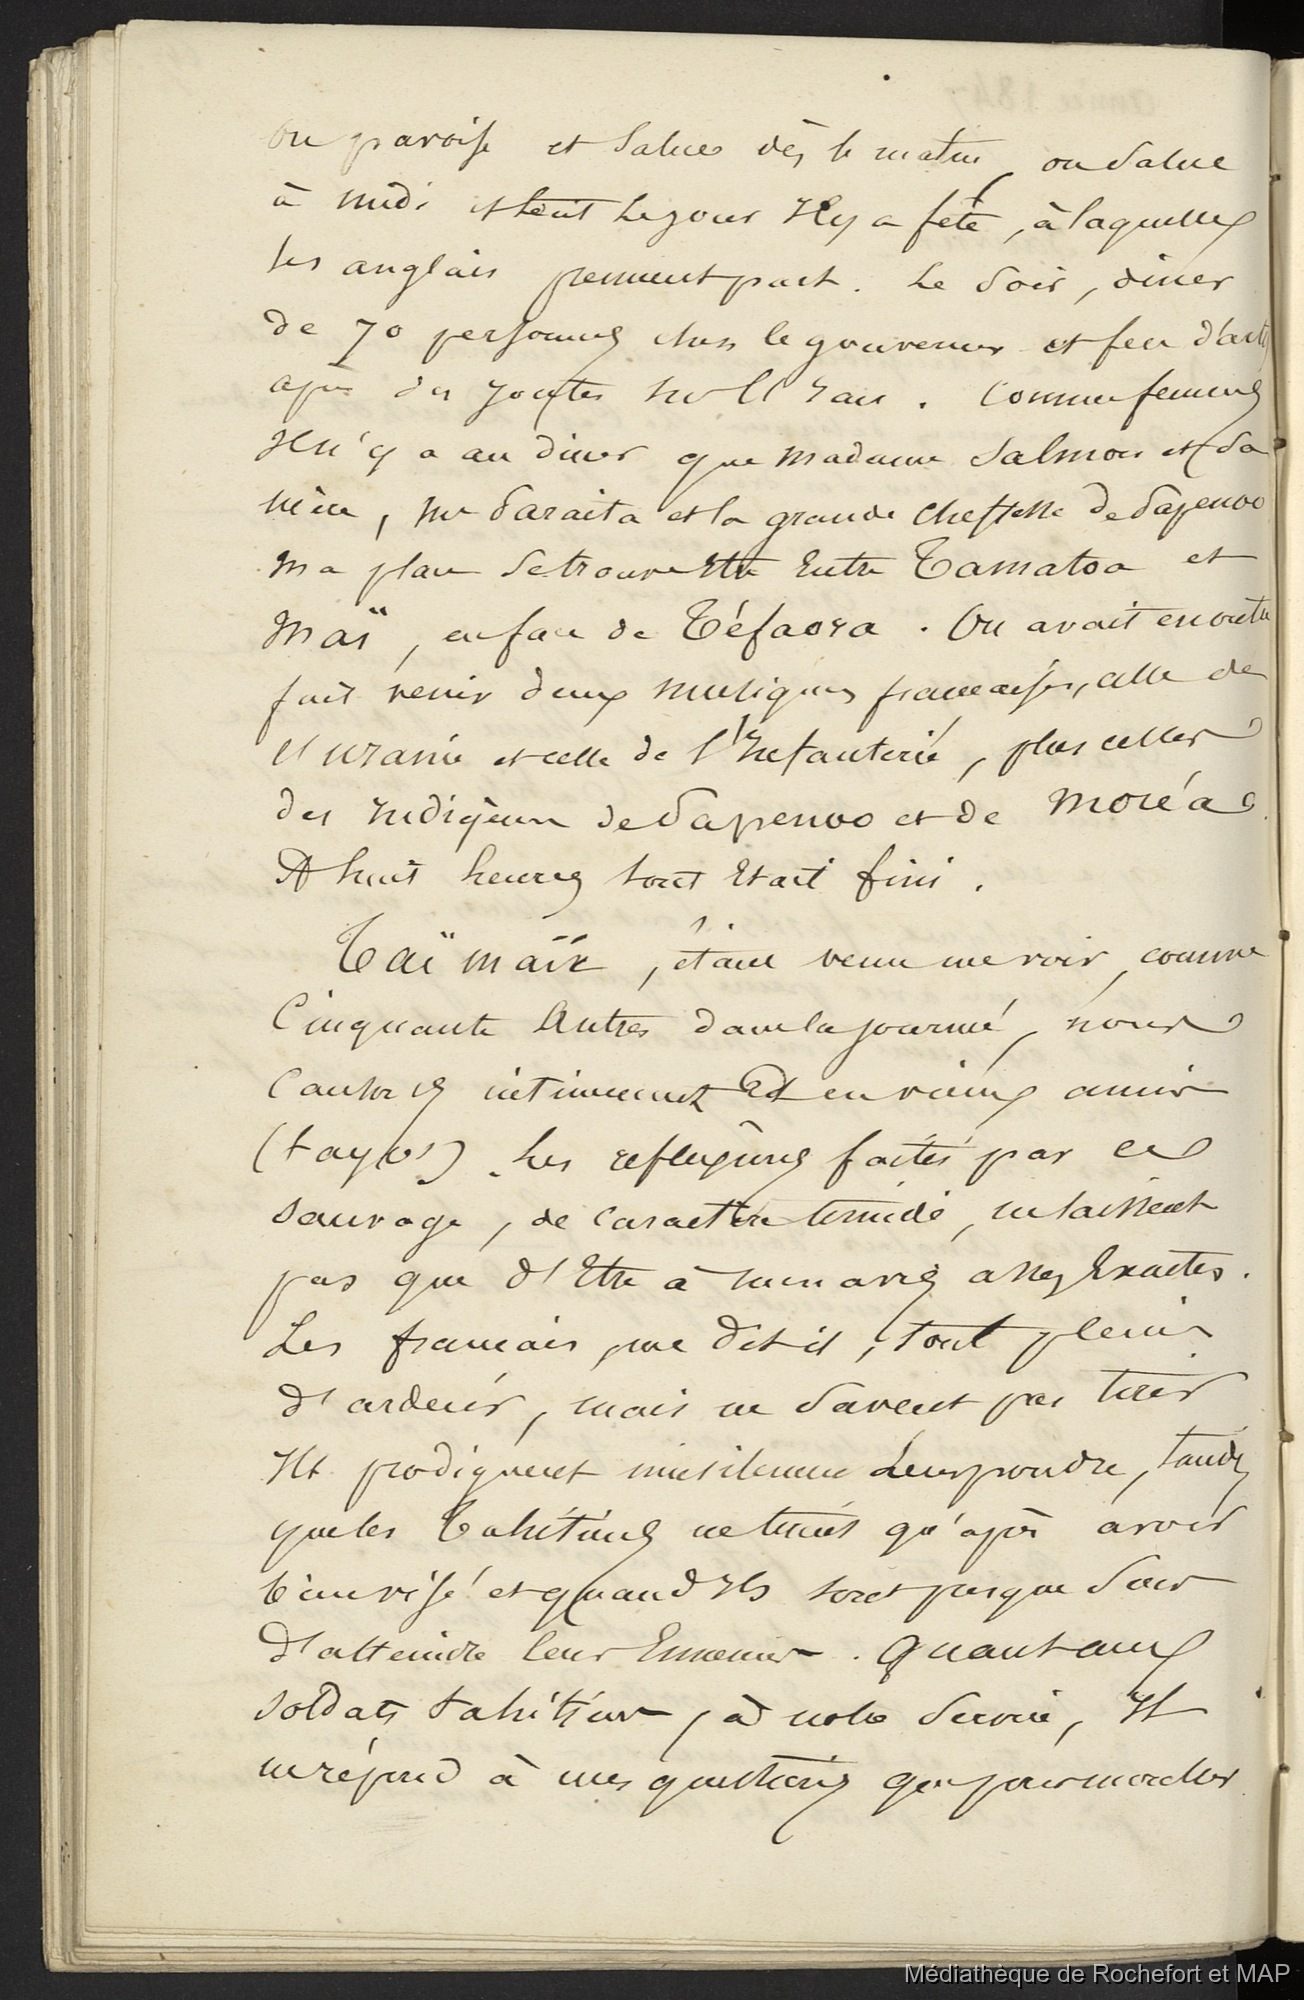 on pavoise et salue dès le matin, on salue
à midi et tout le jour Il y a fête, à laquelle
les anglais prennent part. Le soir, diner
de 70 personnes chez le gouverneur et feu d'arti
après des joutes sur l'eau. Comme femmes
Il n'y a au diner que madame Salmon et sa
mère, Mr Daraita et la grande cheffesse de Papenoo
Ma place se trouve être Entre Tamatoa et
Maï, en face de Téfaora. On avait en outre
fait venir deux musiques françaises, celle de
l'Uranie et celle de l'Infanterie, plus celles
des Indigènes de Papenoo et de Moréa.
A huit heures tout était fini.
Taïmaïx, étant venu me voir, comme
Cinquante Autres dans la journée, nous
Causons intimement Et en vieux amis
(tayos). Les reflexions faites par ce
sauvage, de caractère timide, ne laissent
pas que d'Etre à mon avis assez Exactes.
Les français, me dit-il, sont pleins
d'ardeur, mais ne savent pas tirer
Ils prodiguent inutilement Leur poudre, tandis
que les Tahitiens ne tirent qu'après avoir
bien visé et quand Ils sont presque surs
d'atteindre leur Ennemi. Quant aux
soldats tahitiens, à notre service, Il
me répond à mes questions que pour mon